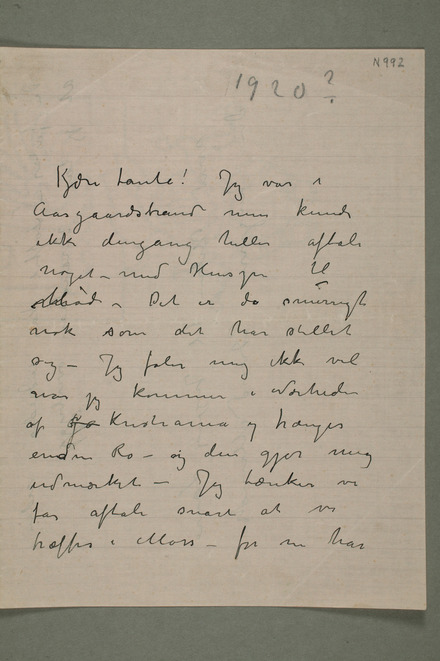 N 992
1920?
Kjære tante! Jeg var i
Aasgaardstrand men kunde
ikke dengang heller aftale
noget – med Huspr til
– Det er da snurrigt
nok som det har stillet
sig – Jeg føler mig ikke vel
naar jeg kommer i nærheden
af Kristiania og trænger
endnu Ro – og den gjør mig
udmærket – Jeg tænker vi
far aftale snart at vi
træffes i Moss – for nu har